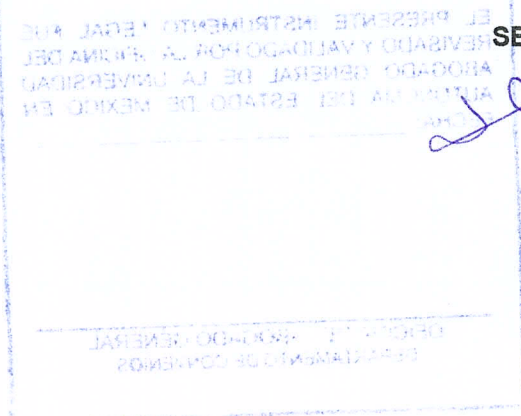 EL PRESENTE INSTRUMENTO LEGAL FUE
REVISADO Y VALIDADO POR LA OFICINA DEL
ABOGADO GENERAL DE LA UNIVERSIDAD
AUTONOMA DEL ESTADO DE MEXICO EN
FECHA:
SE
ABOGADO GENERAL
DEPARTAMENTO DE CONVENIOS